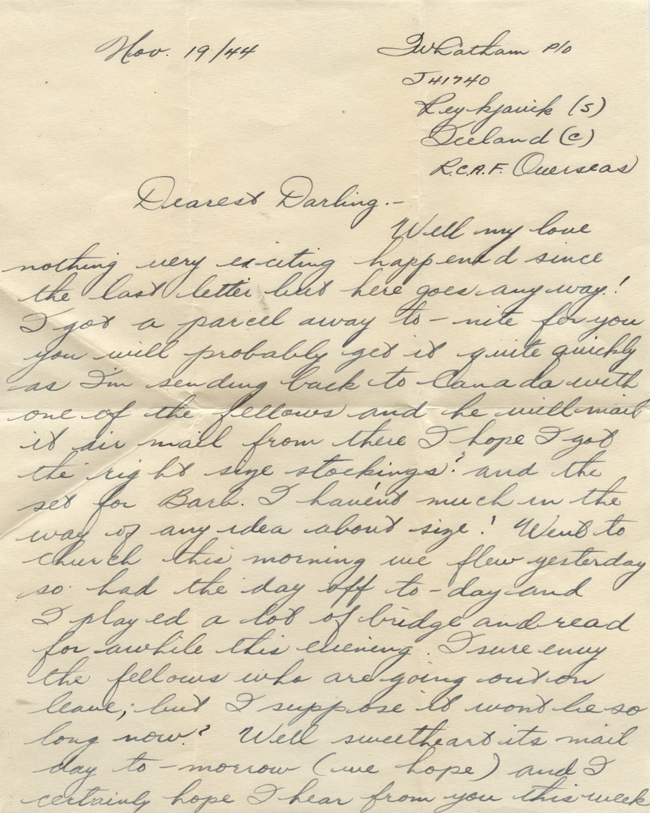 Nov. 19/44
J W Latham P/O
J41740
Reykjavik (S)
Iceland (C)
R.C.A.F. Overseas
Dearest Darling.-
Well my love
nothing very exciting happened since
the last letter but here goes any way!
I got a parcel away to-nite for you
you will probably get it quite quickly
as I'm sending back to Canada with
one of the fellows and he will mail
it air mail from there I hope I got
the right size stockings? and the
set for Barb. I haven't much in the
way of any idea about size! Went to
church this morning we flew yesterday
so had the day off to-day and
I played a lot of bridge and read
for awhile this evening. I sure envy
the fellows who are going out on
leave; but I suppose it wont be so
long now? Well sweetheart its mail
day to-morrow (we hope) and I
certainly hope I hear from you this week